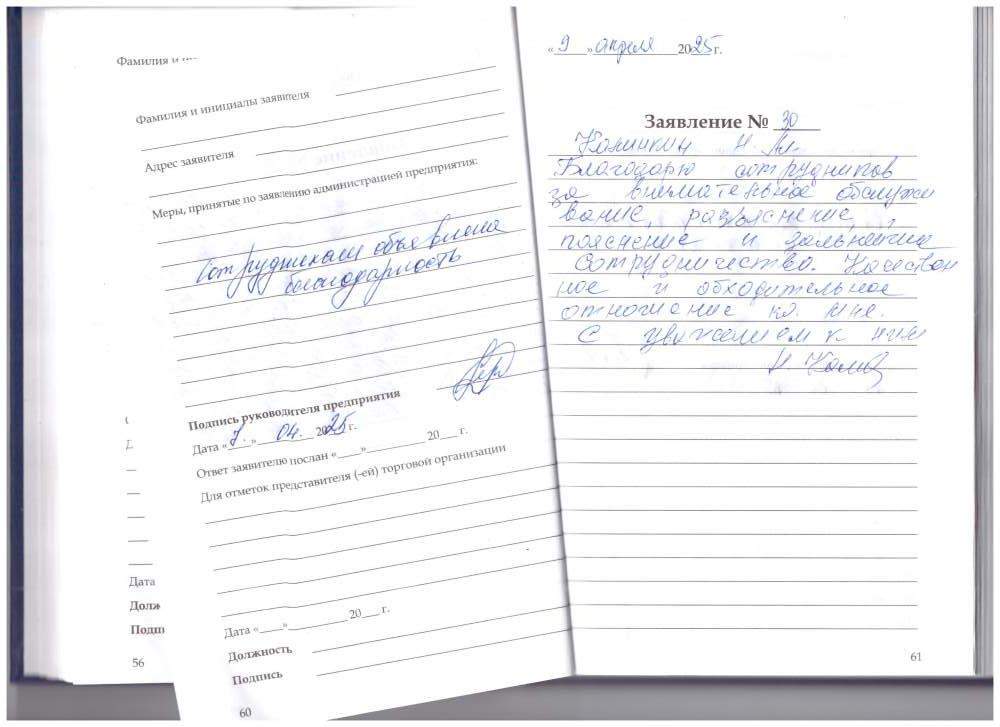 Фамилия и
Фамилия и инициалы заявителя
Адрес заявителя
Меры, принятые по заявлению администрацией предприятия:
Сотрудникам объявлена
благодарность
Подпись руководителя предприятия
Дата «7.» 04. 2025 г.
Ответ заявителю послан «____»__________ 20___ г.
Для отметок представителя (-ей) торговой организации
Дата «____»__________ 20___ г.
Должность
Подпись
60
Дата
Долж
Подп
56
«9» апреля 2025 г.
Заявление № 30
Калинкин Н.
Благодарю сотрудников
за внимательное обслужи
вание, разъяснение,
пояснение и дальнейшее
сотрудничество. Качествен
ное и обходительное
отношение ко мне.
С уважением к ним
Н.
61